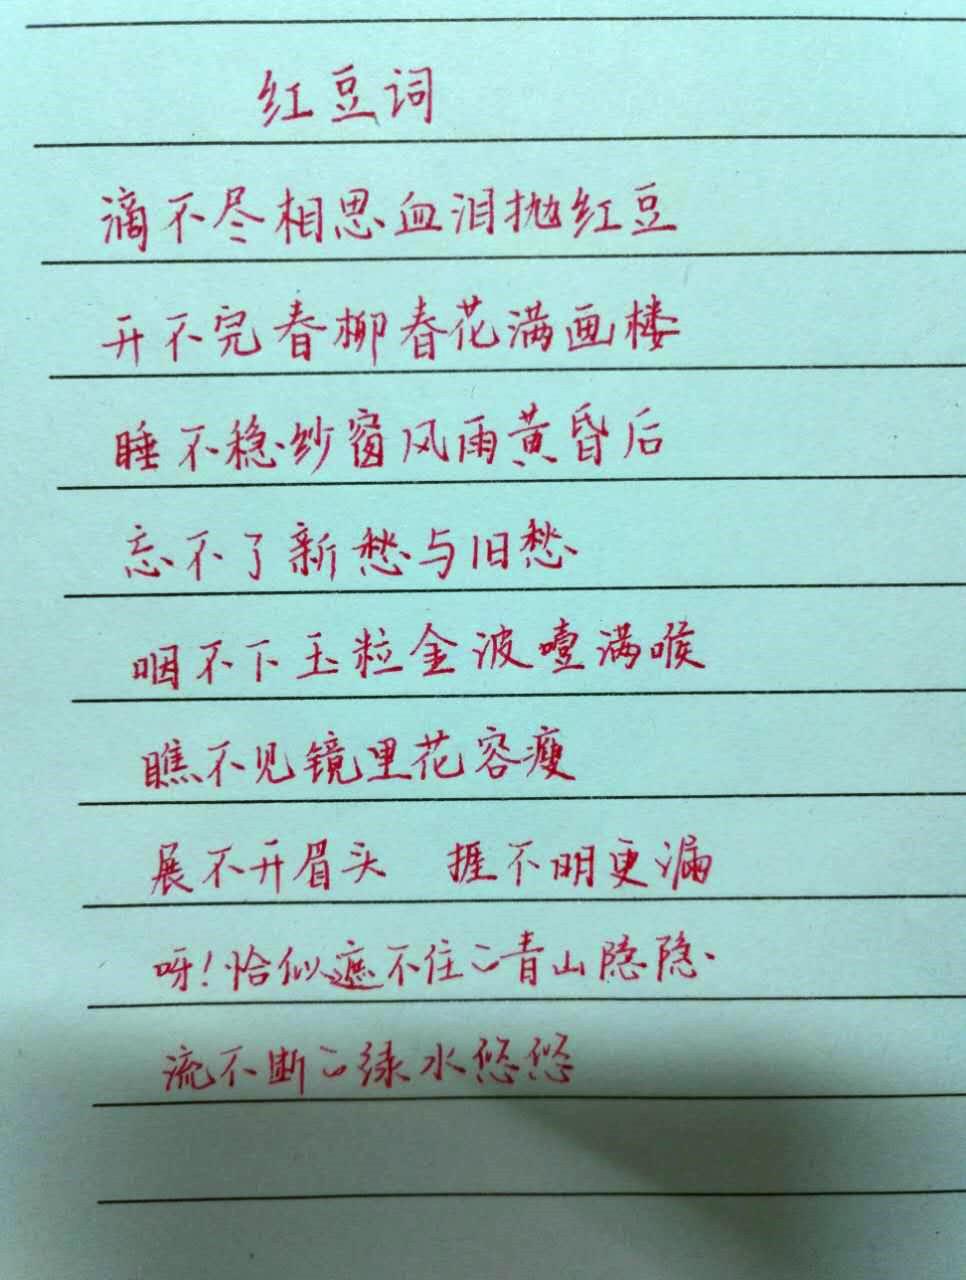 红豆词
滴不尽相思血泪抛红豆
开不完春柳春花满画楼
睡不稳纱窗风雨黄昏后
忘不了新愁与旧愁
咽不下玉粒金波噎满喉
瞧不见镜里花容瘦
展不开眉头 捱不明更漏
呀!恰似遮不住的青山隐隐
流不断的绿水悠悠